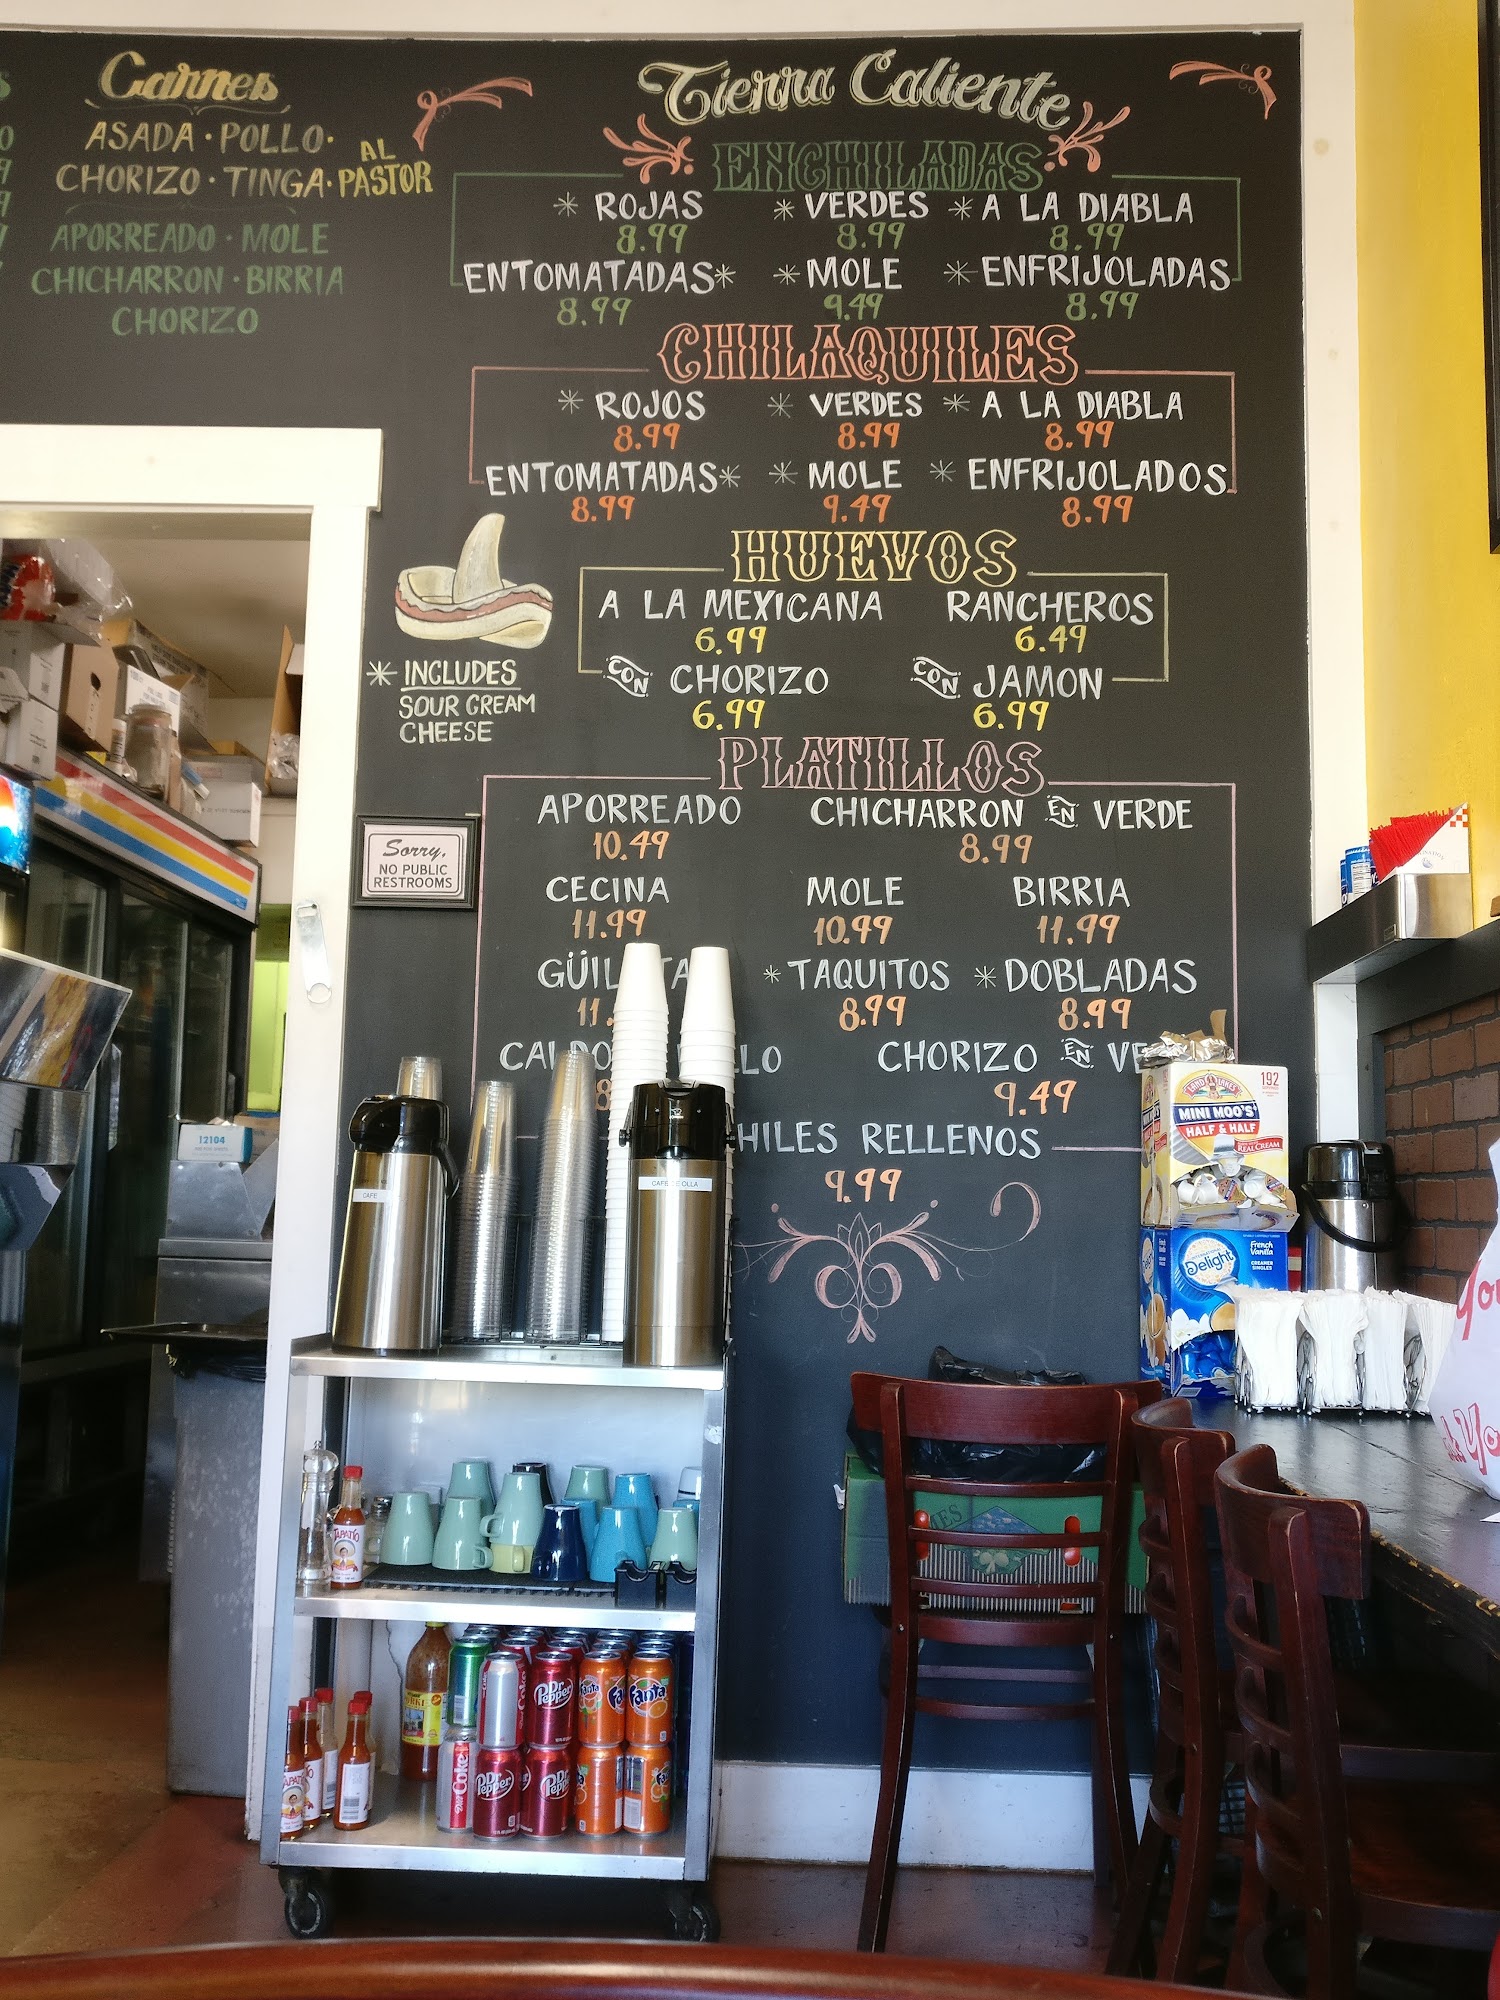 Carnes
ASADA · POLLO ·
CHORIZO · TINGA · AL PASTOR
APORREADO · MOLE
CHICHARRON · BIRRIA
CHORIZO
Tierra Caliente
ENCHILADAS
* ROJAS * VERDES * A LA DIABLA
8.99 8.99 8.99
ENTOMATADAS* * MOLE * ENFRIJOLADAS
8.99 9.49 8.99
CHILAQUILES
* ROJOS * VERDES * A LA DIABLA
8.99 8.99 8.99
ENTOMATADAS* * MOLE * ENFRIJOLADOS
8.99 9.49 8.99
HUEVOS
A LA MEXICANA RANCHEROS
6.99 6.49
CON CHORIZO CON JAMON
6.99 6.99
* INCLUDES
SOUR CREAM
CHEESE
PLATILLOS
APORREADO CHICHARRON EN VERDE
10.49 8.99
CECINA MOLE BIRRIA
11.99 10.99 11.99
* TAQUITOS * DOBLADAS
8.99 8.99
CHORIZO EN
9.49
HILES RELLENOS
9.99
Sorry,
NO PUBLIC
RESTROOMS
12104
CAFE
LAND O LAKES
192
MINI MOO'S
HALF & HALF
REAL CREAM
INTERNATIONAL
Delight
French
Vanilla
CREAMER
SINGLES
TAPATIO
Dr Pepper
Fanta
Fanta
TAPATIO
Diet Coke
Dr Pepper
Dr Pepper